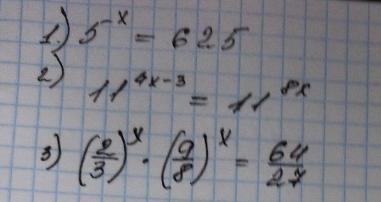 1) 5^x = 625
2) 11^(4x-3) = 11^(8x)
3) (2/3)^x · (9/8)^x = 64/27